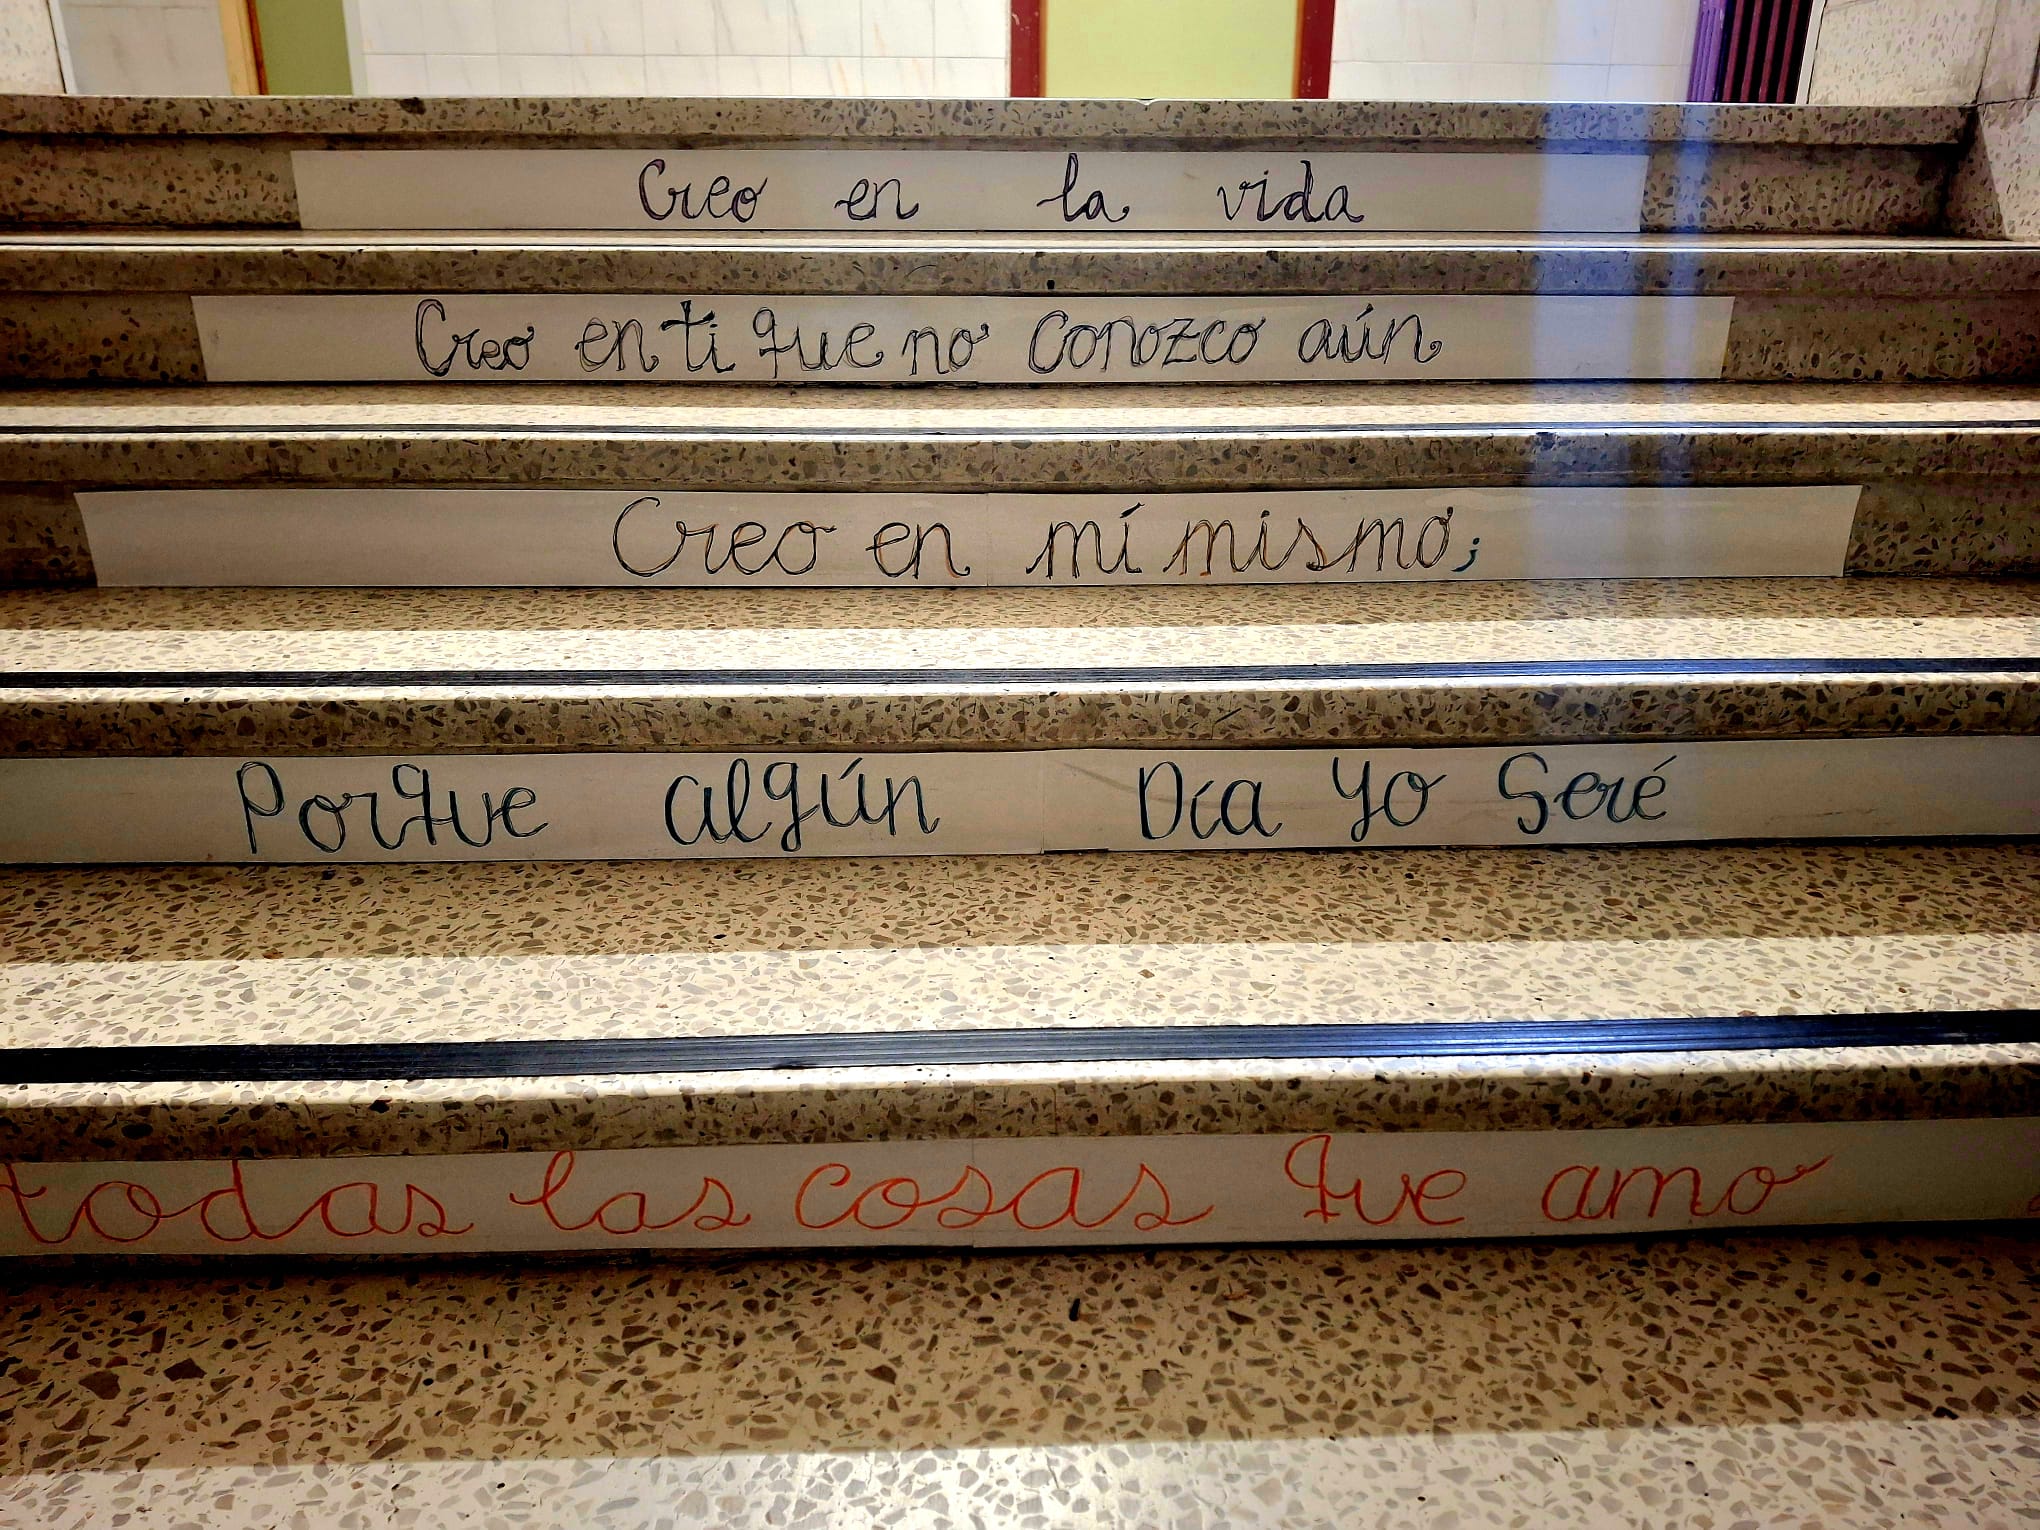 Creo en la vida
Creo en ti que no conozco aún
Creo en mí mismo;
Porque algún Día yo Seré
todas las cosas que amo